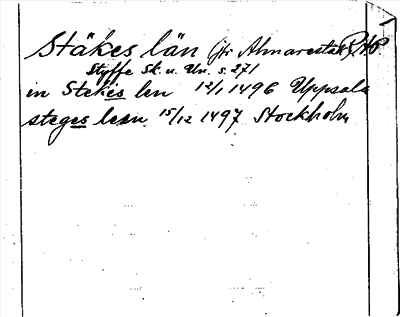 Stäkes län (jfr Almarestäk) RHP
Styffe Sk. u. Un. s. 271
in Stekis len 12/1 1496 Uppsala
steges leen 15/12 1497 Stockholm